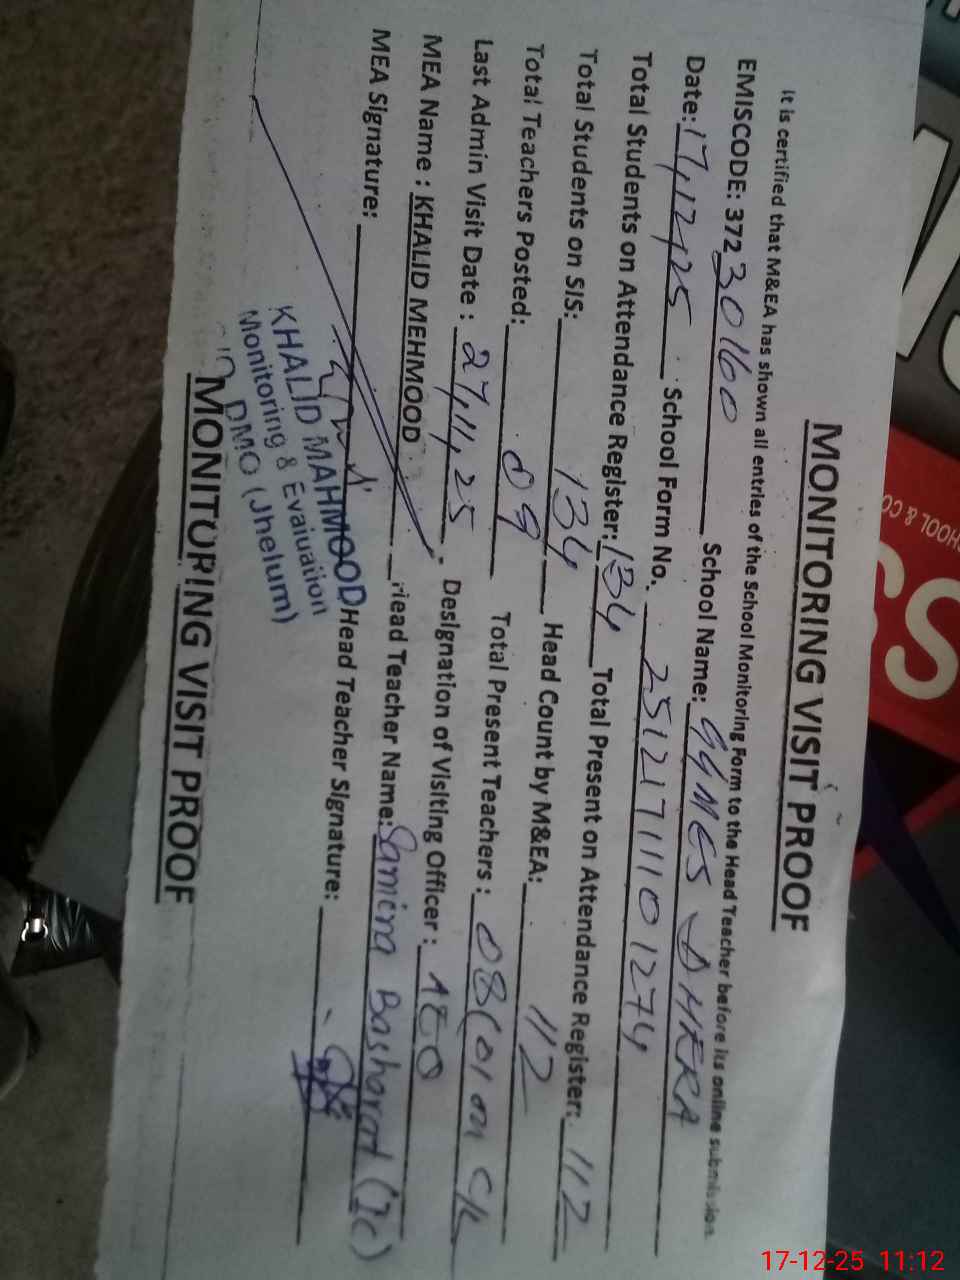 MONITORING VISIT PROOF
It is certified that M&EA has shown all entries of the School Monitoring Form to the Head Teacher before its online submission
EMISCODE: 37230160 School Name: GGMES DHERA
Date: 17,12,25 School Form No. 2512171110 1274
Total Students on Attendance Register: 134 Total Present on Attendance Register: 112
Total Students on SIS: 134 Head Count by M&EA: 112
Total Teachers Posted: 09 Total Present Teachers: 08(01 on C/L
Last Admin Visit Date : 27,11,25 Designation of Visiting Officer : AEO
MEA Name : KHALID MEHMOOD Head Teacher Name: Samina Basharat (IC)
MEA Signature: Head Teacher Signature:
KHALID MAHMOOD
Monitoring & Evaluation
DMO (Jhelum)
MONITORING VISIT PROOF
17-12-25 11:12